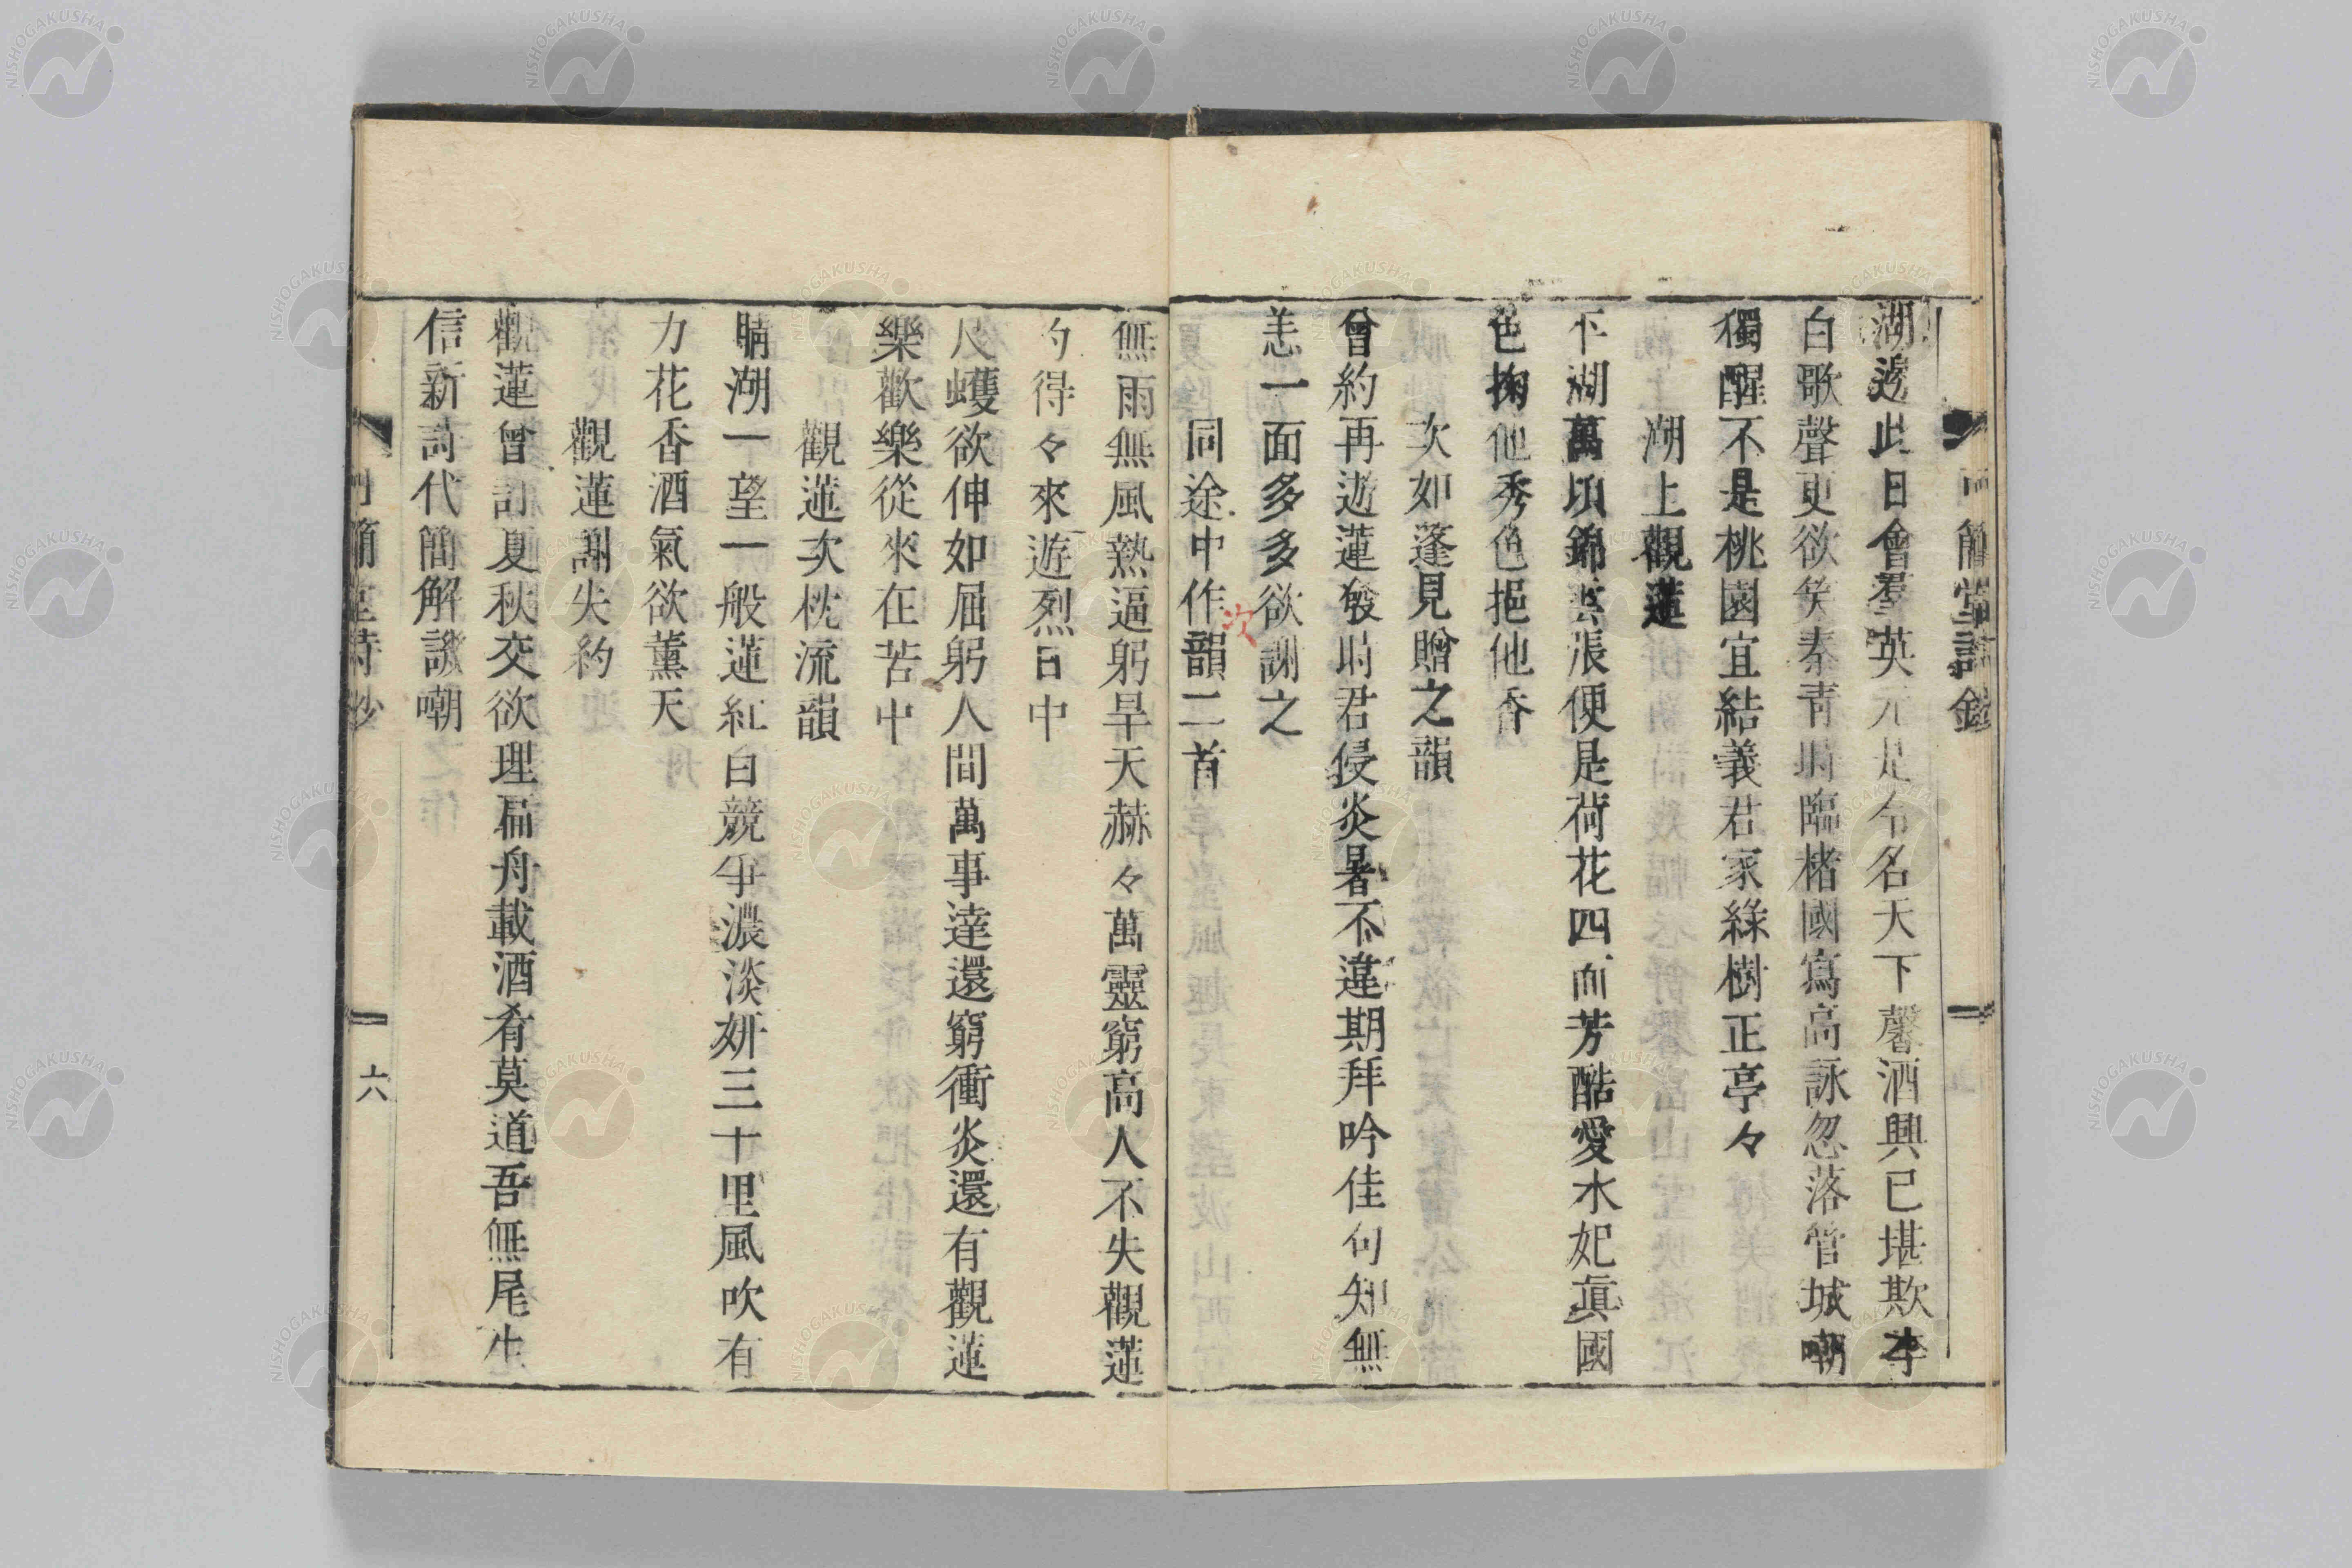 湖邊此日會羣英元是令名天下馨酒興已堪欺李
白歌聲更欲笑秦青時臨楮國寫高詠忽落管城嘲
獨醒不是桃園宜結義君家綠樹正亭々
湖上觀蓮
下湖萬頃錦雲張便是荷花四面芳酷愛水妃眞國
色掬他秀色挹他香
次如蓬見贈之韻
曾約再遊蓮發時君侵炎暑不違期拜吟佳句知無
恙一面多多欲謝之
同途中作韻二首
次
無雨無風熱逼躬旱天赫々萬靈窮高人不失觀蓮
約得々來遊烈日中
尺蠖欲伸如屈躬人間萬事達還窮衝炎還有觀蓮
樂歡樂從來在苦中
觀蓮次枕流韻
晴湖一望一般蓮紅白競爭濃淡妍三十里風吹有
力花香酒氣欲薰天
觀蓮謝失約
觀蓮曾訂夏秋交欲理扁舟載酒肴莫道吾無尾生
信新詩代簡解譏嘲
六
NISHOGAKUSHA